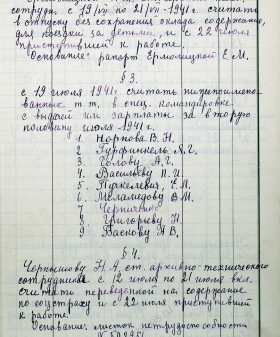 сотрудн. с 19/VII по 21/VII-1941 г. считать
в отпуску без сохранения оклада содержания,
для поездки за детьми, и с 22 июля
приступившей к работе.
Основание: рапорт Ермолицкой Е.М.
§ 3.
С 19 июля 1941 г. считать нижепоимено-
ванных т.т. в спец. командировке
с выдачей им зарплаты за вторую
половину июля 1941 г.
1. В. Н.
2. Гурфинкель Я. Г.
3. Голову А. Г.
4. Васильеву П. И.
5. Путкелевич Е. П.
6. Меламедову В. М.
7 Черниченко
8 Григорьеву Н.
9 Баскову Я В.
§ 4.
Чернышову Н. А. ст. архивно-технического
сотрудника с 12 июля по 21 июля вкл.
считать переведенной на содержание
по соцстраху и с 22 июля приступившей
к работе.
Основание: листок нетрудоспособности
№